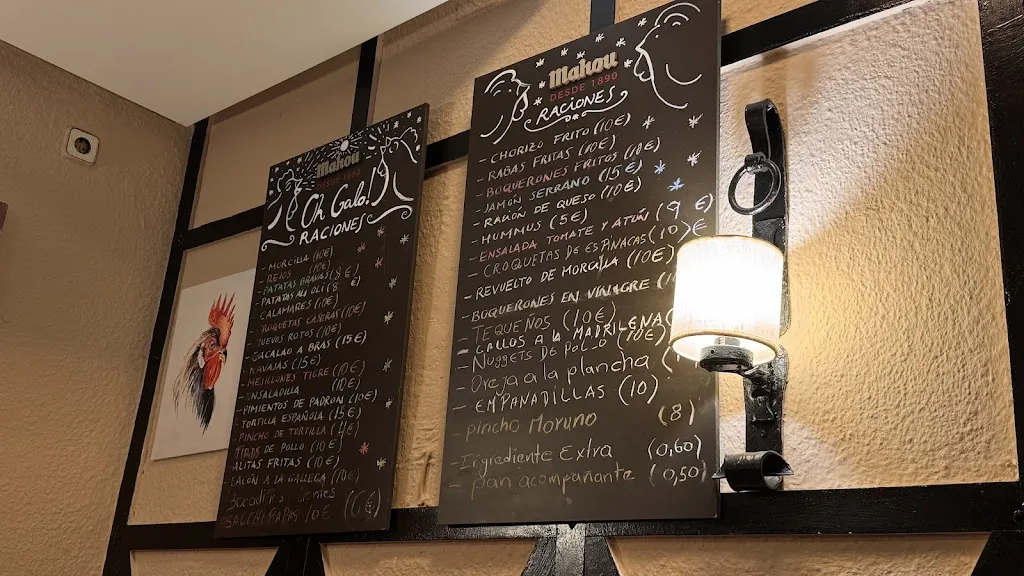 Mahou
DESDE 1890
Oh Galo!
RACIONES
- MORCILLA (10€)
- REJOS (10€)
- PATATAS BRAVAS (8€)
- PATATAS ALI OLI (8€)
- CALAMARES (10€)
CASERAS (10€)
ROTOS (10€)
- BACALAO A BRAS (15€)
- NAVAJAS (15€)
- MEJILLONES TIGRE (10€)
ENSALADILLA (10€)
PIMIENTOS DE PADRON (10€)
TORTILLA ESPAÑOLA (15€)
PINCHO DE TORTILLA (4€)
DE POLLO (10€)
ALITAS FRITAS (10€)
LACÓN A LA GALLEGA (10€)
(6€)
SALCHIPAPAS 10€
Mahou
DESDE 1890
RACIONES
- CHORIZO FRITO (10€)
- RABAS FRITAS (10€)
- BOQUERONES FRITOS (10€)
- JAMÓN SERRANO (15€)
- RACIÓN DE QUESO (10€)
- HUMMUS (5€)
- ENSALADA TOMATE Y ATÚN (9€)
- CROQUETAS DE ESPINACAS (10€)
- REVUELTO DE MORCILLA (10€)
- BOQUERONES EN VINAGRE
- TEQUEÑOS (10€)
- CALLOS A LA MADRILEÑA
- NUGGETS DE POLLO (10€)
- Oreja a la plancha
- EMPANADILLAS (10)
- pincho Moruno (8)
- Ingrediente Extra (0,60)
- pan acompañante (0,50)